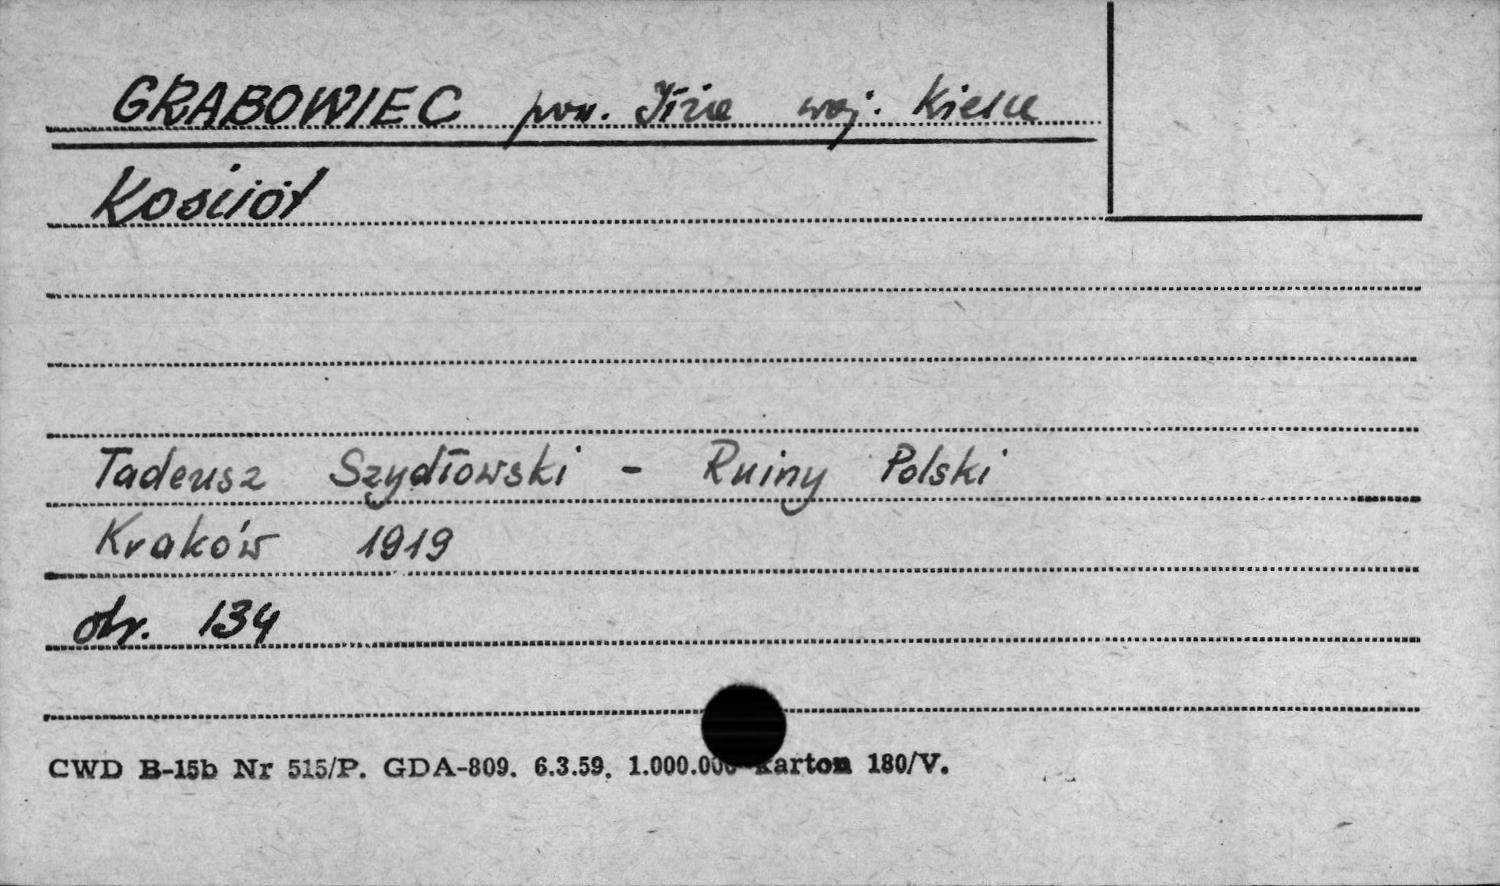 GRABOWIEC pow. Iłża woj. Kielce
Kościół
Tadeusz Szydłowski - Ruiny Polski
Kraków 1919
str. 134
CWD B-15b Nr 515/P. GDA-809. 6.3.59. 1.000.000 Karton 180/V.